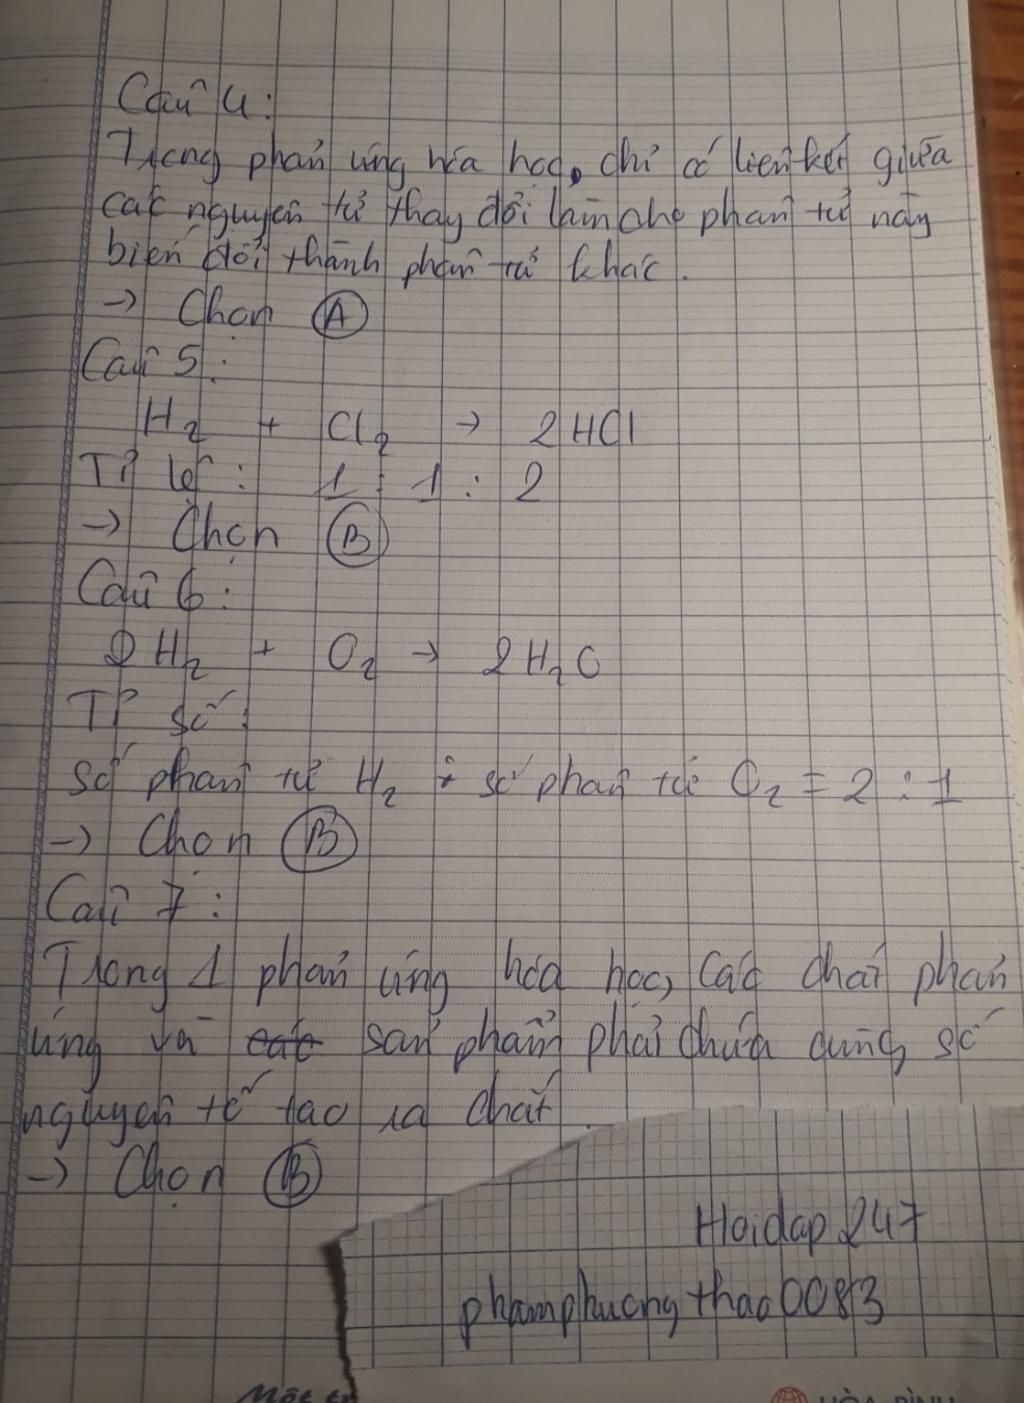 Câu 4:
Trong phản ứng hóa học, chỉ có liên kết giữa
các nguyên tử thay đổi làm cho phân tử này
biến đổi thành phân tử khác.
→ Chọn A
Câu 5:
H₂ + Cl₂ → 2HCl
Tỉ lệ: 1 : 1 : 2
→ Chọn B
Câu 6:
2H₂ + O₂ → 2H₂O
Tỉ số:
Số phân tử H₂ : số phân tử O₂ = 2 : 1
→ Chọn B
Câu 7:
Trong 1 phản ứng hóa học, các chất phản
ứng và các sản phẩm phải chứa cùng số
nguyên tố tạo ra chất.
→ Chọn B
Hoidap 247
phamphuongthao0083
HÒA BÌNH